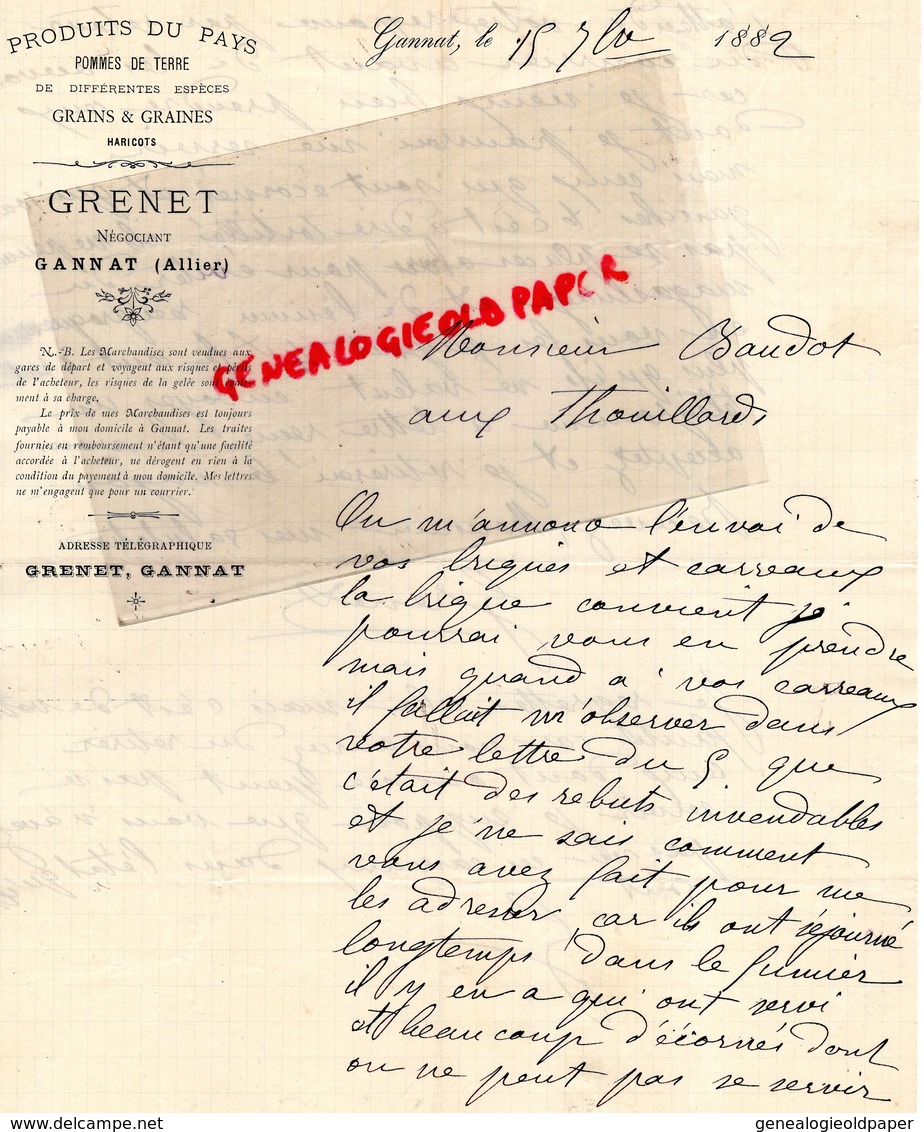 PRODUITS DU PAYS
POMMES DE TERRE
DE DIFFÉRENTES ESPÈCES
GRAINS & GRAINES
HARICOTS
GRENET
NÉGOCIANT
GANNAT (Allier)
N.-B. Les Marchandises sont vendues aux
gares de départ et voyagent aux risques et périls
de l'acheteur, les risques de la gelée sont égale-
ment à sa charge.
Le prix de mes Marchandises est toujours
payable à mon domicile à Gannat. Les traites
fournies en remboursement n'étant qu'une facilité
accordée à l'acheteur, ne dérogent en rien à la
condition du payement à mon domicile. Mes lettres
ne m'engagent que pour un courrier.
ADRESSE TÉLÉGRAPHIQUE
GRENET, GANNAT
Gannat, le 15 7bre 1882
GENEALOGIEOLDPAPER
Monsieur Baudot
aux Thouillards
On m'annonce l'envoi de
vos briques et carreaux
la brique convient je
pourrai vous en prendre
mais quand à vos carreaux
il fallait m'observer dans
votre lettre du 5 que
c'était des rebuts invendables
et je ne sais comment
vous avez fait pour me
les adresser car ils ont séjourné
longtemps dans le fumier
il y en a qui ont servi
et beaucoup d'écornés dont
on ne peut pas se servir
www.delcampe.net
genealogieoldpaper